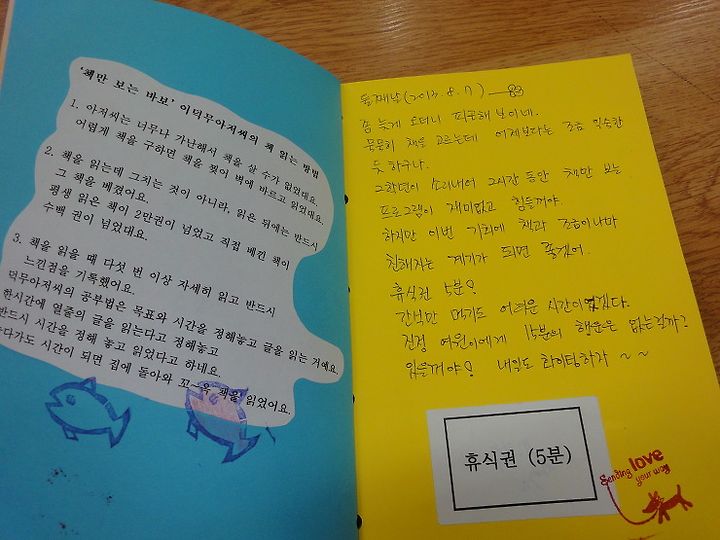 '책만 보는 바보' 이덕무아저씨의 책 읽는 방법
1. 아저씨는 너무나 가난해서 책을 살 수가 없었대요.
어렵게 책을 구하면 책을 찢어 벽에 바르고 읽었대요.
2. 책을 읽는데 그치는 것이 아니라, 읽은 뒤에는 반드시
그 책을 베꼈어요.
평생 읽은 책이 2만권이 넘었고 직접 베긴 책이
수백 권이 넘었대요.
3. 책을 읽을 땐 다섯 번 이상 자세히 읽고 반드시
느낀점을 기록했어요.
덕무아저씨의 공부법은 목표와 시간을 정해놓고 글을 읽는 거예요.
한시간에 열줄의 글을 읽는다고 정해놓고
반드시 시간을 정해 놓고 읽었다고 하네요.
다가도 시간이 되면 집에 돌아와 꼬~옥 책을 읽었어요.
둘째날(2013. 8. 7)
좀 늦게 오더니 피곤해 보이네.
꼼꼼히 책을 고르는데 어제보다는 조금 익숙한
듯 하구나.
2학년이 소리내어 2시간 동안 책만 보는
프로그램이 재미없고 힘들꺼야.
하지만 이번 기회에 책과 조금이나마
친해지는 계기가 되면 좋겠어.
휴식권 5분!
간식만 먹기도 어려운 시간이었겠다.
진정 여원이에게 15분의 행운은 없는걸까?
있을꺼야! 내일도 화이팅하자 ~ ~
휴식권 (5분)
Sending love
your way